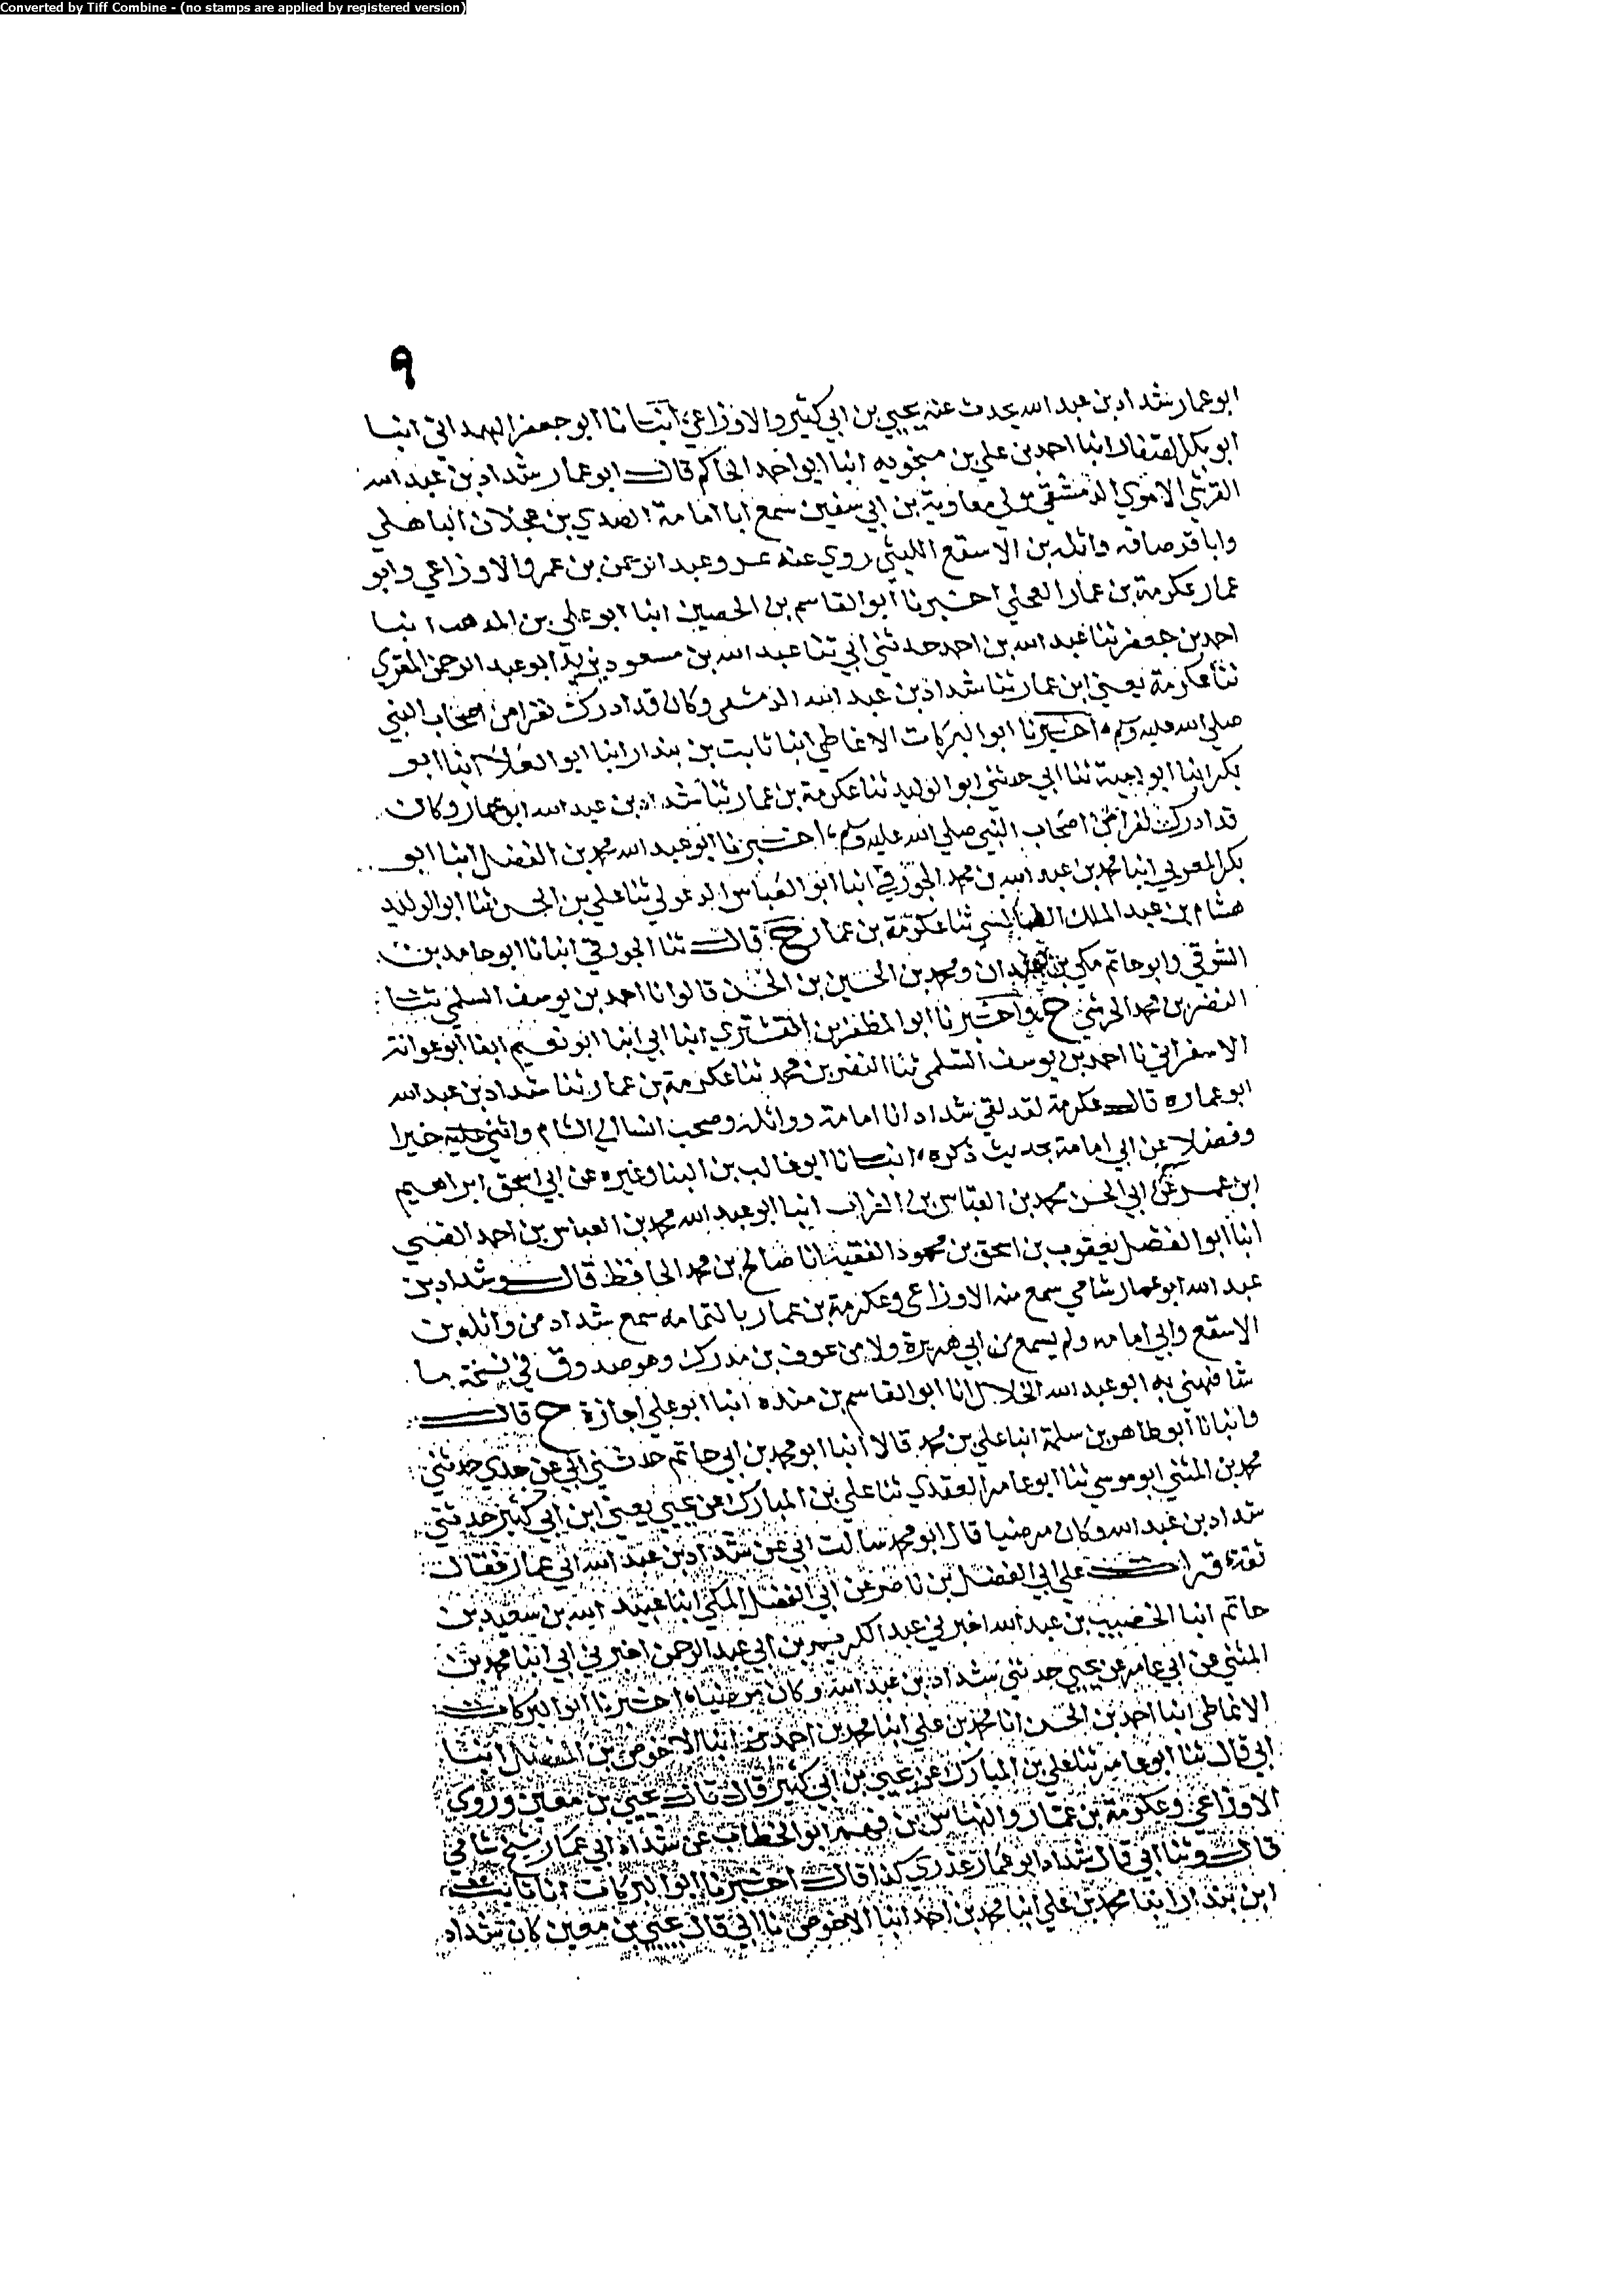 Converted by Tiff Combine - (no stamps are applied by registered version)
٩
ابو عمار شداد بن عبد الله يحدث عنه يحيي بن ابي كثير والاوزاعي انبانا ابو جعفر الهمداني انبا
ابو بكر الصفار انبا احمد بن علي بن منجويه انبا ابو احمد الحاكم قال ابو عمار شداد بن عبد الله
القرشي الاموي الدمشقي مولي معاوية بن ابي سفين سمع ابا امامة الصدي بن عجلان الباهلي
وابا قرصافه واثله بن الاسقع الليثي روي عنه عمرو عبد الرحمن بن عمرو الاوزاعي وابو
عمار عكرمة بن عمار العجلي اخبرنا ابو القاسم بن الحصين انبا ابو علي بن المذهب انبا
احمد بن جعفر ثنا عبد الله بن احمد حدثني ابي ثنا عبد الله بن يزيد ابو عبد الرحمن المقري
ثنا عكرمة يعني ابن عمار ثنا شداد بن عبد الله الدمشقي وكان قد ادرك نفرا من اصحاب النبي
صلي الله عليه وسلم اخبرنا ابو البركات الانماطي انبا ثابت بن بندار انبا ابو العلا انبا ابو
بكر انبا ابو امية ثنا ابي حدثني ابو الوليد ثنا عكرمة بن عمار ثنا شداد بن عبد الله ابو عمار وكان
قد ادرك نفرا من اصحاب النبي صلي الله عليه وسلم اخبرنا ابو عبد الله محمد بن الفضل انبا ابو
بكر المغربي انبا محمد بن عبد الله بن محمد الجوزقي انبا ابو العباس الدغولي ثنا علي بن الحسن ثنا ابو الوليد
هشام بن عبد الملك الطيالسي ثنا عكرمة بن عمار ح قال ثنا الجوزقي انبانا ابو حامد بن
الشرقي وابو حاتم مكي بن عبدان ومحمد بن الحسين بن الحسن قالوا نا احمد بن يوسف السلمي ثنا
النضر بن محمد الحرشي ح واخبرنا ابو المظفر بن القشيري انبا ابي انبا ابو نعيم انبا ابو عوانة
الاسفرايني نا احمد بن يوسف السلمي ثنا النضر بن محمد ثنا عكرمة بن عمار ثنا شداد بن عبد الله
ابو عماره قال عكرمة لقد لقي شداد ابا امامة وواثلة وصحب انسا الي الشام واثني عليه خيرا
وفضلا عن ابي امامة بحديث ذكره انبانا ابو غالب بن البنا وغيره عن ابي اسحق ابراهيم
ابن عمر عن ابي الحسن محمد بن العباس بن الفرات انبا ابو عبد الله محمد بن العباس بن احمد الضبي
انبا ابو الفضل يعقوب بن اسحق بن محمود الفقيه انا صالح بن محمد الحافظ قال وشداد بن
عبد الله ابو عمار شامي سمع منه الاوزاعي وعكرمة بن عمار باليمامه سمع شداد من واثله بن
الاسقع وابي امامه ولم يسمع من ابي هريرة ولا من عوف بن مدرك وهو صدوق في نسخة ما
شافهني به ابو عبد الله الخلال انا ابو القاسم بن منده انبا ابو علي اجازة ح قال
وانبانا ابو طاهر بن سلمة انبا علي بن محمد قالا انبا ابو محمد بن ابي حاتم حدثني ابي عن جدي حدثني
محمد بن المثني ابو موسي ثنا ابو عامر العقدي ثنا علي بن المبارك عن يحيي يعني ابن ابي كثير حدثني
شداد بن عبد الله وكان مرضيا قال ابو محمد سالت ابي عن شداد بن عبد الله ابي عمار فقال
ثقة قرات علي ابي الفضل بن ناصر عن ابي الفضل المكي انبا عبيد الله بن سعيد بن
حاتم انبا الخصيب بن عبد الله اخبرني عبد الكريم بن ابي عبد الرحمن اخبرني ابي انبا محمد بن
المثني عن ابي عامر عن يحيي حدثني شداد بن عبد الله وكان مرضياه اخبرنا ابو البركات
الانماطي انبا احمد بن الحسن انا محمد بن علي انبا محمد بن احمد انبا الاحوص بن المفضل انبا
ابي قال ثنا ابو عامر ثنا علي بن المبارك عن يحيي بن ابي كثير قال قال يحيي بن معين وروي
الاوزاعي وعكرمة بن عمار والنهاس بن فهم ابو الخطاب عن شداد ابي عمار شيخ شامي
قال وثنا ابي قال شداد ابو عمار عذري كذا قال اخبرنا ابو البركات انا ثابت
ابن بندار انبا محمد بن علي انبا محمد بن احمد انبا الاحوص نا ابي قال يحيي بن معين كان شداد